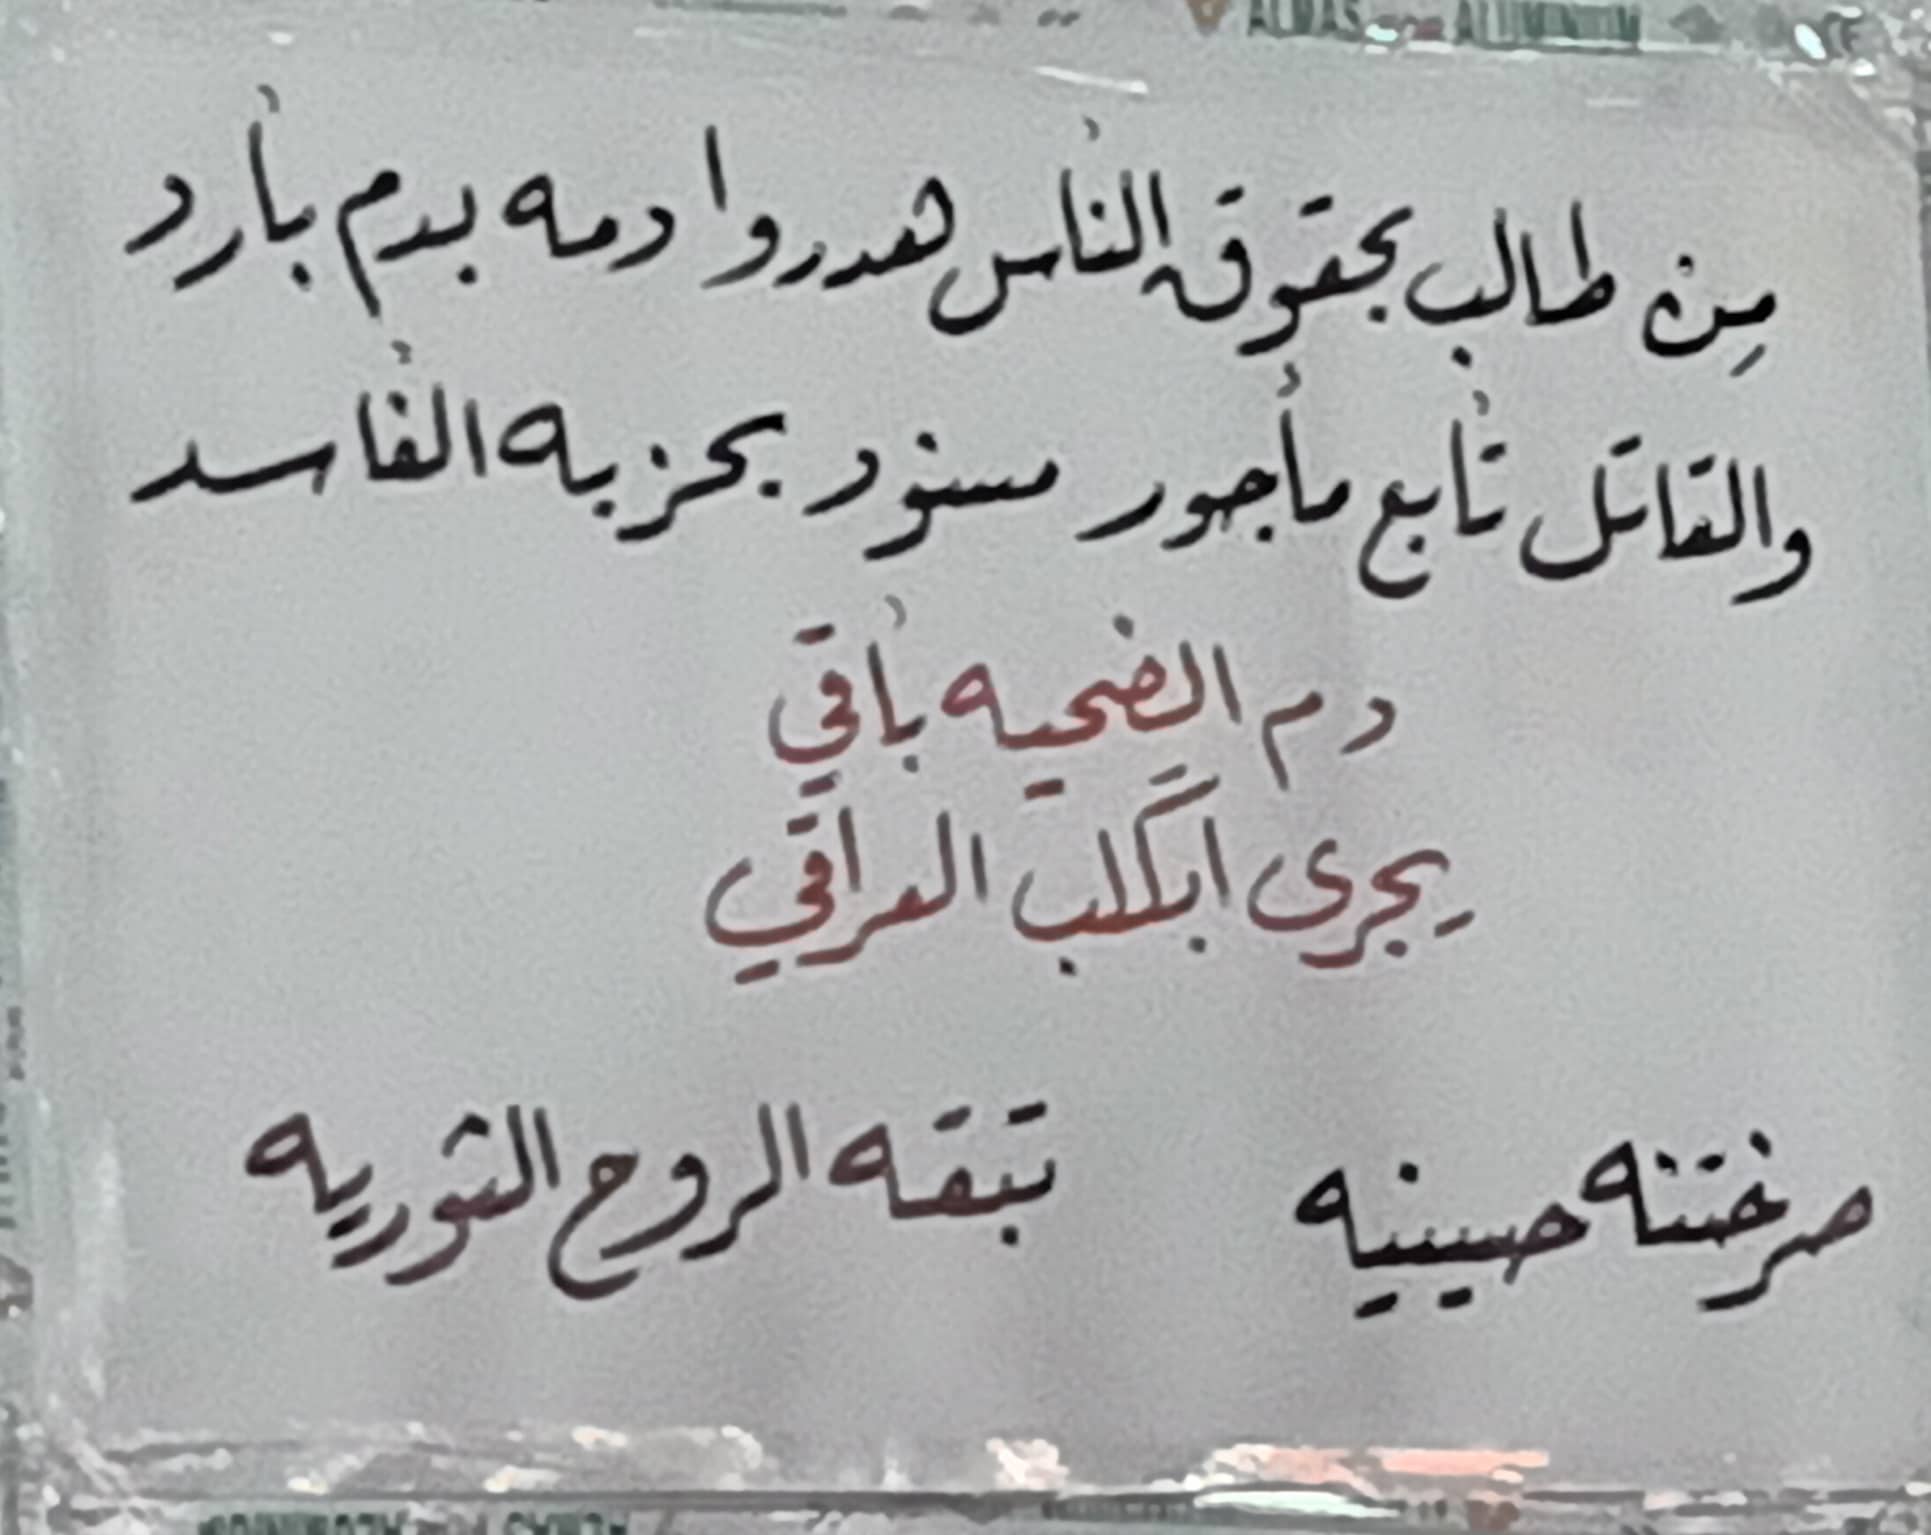 ALMAS ALUMINIUM
مِنْ طالب بحقوق الناس هدروا دمه بدم بارد
والقاتل تابع مأجور مسنود بحزبه الفاسد
دم الضحيه باقي
يِجري ابكَلب العراقي
صرختنه حسينيه تبقه الروح الثوريه